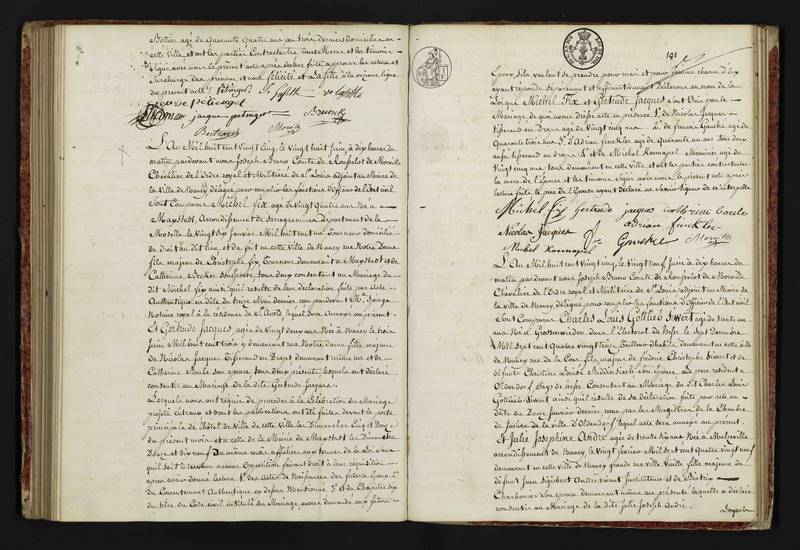 Bottier agé de Quarante Quatre ans les trois derniers domiciliés en
cette Ville et ont les parties Contractantes leurs Meres et les témoins
Signé avec nous le présent acte après lecture faite approuvé la rature et
Surcharge des prénoms et nom félicité et Lafitte à la onzieme ligne
du présent acte
jacques petringer
Brunet
L'An Mil huit cent Vingt Cinq, le Vingt huit Juin, à dix heures du
matin pardevant nous Joseph Bruno Comte de Morville
Chevalier de l'Ordre royal et Militaire de St Louis adjoint au Maire de
la Ville de Nancy délégué pour remplir les fonctions d'Officier de l'Etat civil
Sont Comparus Michel Fix agé de Vingt Quatre ans Né à
Maxstadt, Arrondissement de Sarreguemines Département de la
Moselle le Vingt Six Janvier Mil huit cent un Tourneur domicilié
de droit au dit lieu et de fait en cette Ville de Nancy rue Notre Dame
fils majeur de Christophe fix, Tourneur demeurant à Maxstadt et de
Catherine Becker son Epouse tous deux consentant au Mariage du
dit Michel fix ainsi qu'il résulte de leur déclaration faite par acte
Authentique en date du treize Mai dernier
Notaire royal à la résidence de St Avold lequel sera Annexé au présent
Et Gertrude Jacques, agée de Vingt deux ans Née à Nancy le trois
Juin Mil huit cent trois y demeurant rue Notre Dame fille majeure
de Nicolas Jacques Tisserand en Draps demeurant même rue et de
Catherine Boule son épouse tous deux présents lesquels ont déclaré
consentir au Mariage de la dite Gertrude Jacques.
Lesquels nous ont requis de procéder à la Célébration du Mariage
projeté entr'eux et dont les publications ont été faites devant la porte
principale de l'hôtel de Ville de cette Ville les Dimanches Cinq et Douze
du présent mois et à celle de la Mairie de Maxstadt les Dimanches
Douze et dix neuf du même mois affichées aux termes de la Loi sans
qu'il soit intervenu aucune Opposition faisant droit à leur requisition
après avoir donné lecture 1° des Actes de Naissances des futurs Epoux 2°
du Consentement Authentique ci dessus Mentionné 3° et du Chapitre six
du titre du Code civil intitulé du Mariage avons demandé aux futurs
191
Epoux, s'ils veulent se prendre pour mari et pour femme, chacun d'eux
ayant répondu séparement et affirmativement déclarons au nom de la
Loi que Michel Fix et Gertrude Jacques sont Unis par le
Mariage de quoi avons dressé acte en présence
Tisserand en Draps agé de Vingt Cinq ans
Quarante trois ans 3° d'Adrien finckler agé de Quarante un ans tous deux
aussi tisserand en Draps 4° et de Michel Menuisier agé de
Vingt cinq ans tous demeurant en cette Ville et ont les parties contractantes
la mere de l'Epouse et les témoins Signé avec nous le présent acte après
lecture faite le pere de l'Epouse ayant déclaré ne savoir signer de ce interpellé
Michel Fix Gertrude jacques Catherine boule
Nicolas Jacques
adrien finckler
Michel
Morville
L'An Mil huit cent Vingt cinq, le Vingt neuf Juin à dix heures du
matin pardevant nous Joseph Bruno Comte de Morville
Chevalier de l'Ordre royal et Militaire de St Louis adjoint au Maire de
la Ville de Nancy, délégué pour remplir les fonctions d'Officier de l'Etat civil
Sont Comparus Charles Louis Gottlieb Siwert agé de trente un
ans Né à Grossenwieden dans l'Electorat de hesse le Sept Décembre
Mil Sept cent Quatre Vingt treize Tailleur d'habits demeurant en cette Ville
de Nancy rue de la Cour fils majeur de frédéric Christophe Siwert et de
défunte Christine Louise son Epouse. Le pere résidant à
Oldendorf Pays de hesse Consentant au Mariage du dit Charles Louis
Gottlieb Siwert ainsi qu'il résulte de sa déclaration faite par acte en
date du Douze Janvier dernier reçu par le Magistrat de la Chambre
de Justice de la Ville d'Oldendorf lequel acte sera annexé au présent.
Et Julie Josephine André agée de trente six ans Née à Malzéville
arrondissement de Nancy le Vingt février Mil Sept cent Quatre Vingt neuf
demeurant en cette Ville de Nancy grande rue Ville Vieille fille majeure de
défunt Jean Sigisbert André vivant Instituteur et de Béatrix
Charbonnier son épouse demeurant même rue présente laquelle a déclaré
consentir au Mariage de la dite Julie Joseph André.
Lesquels